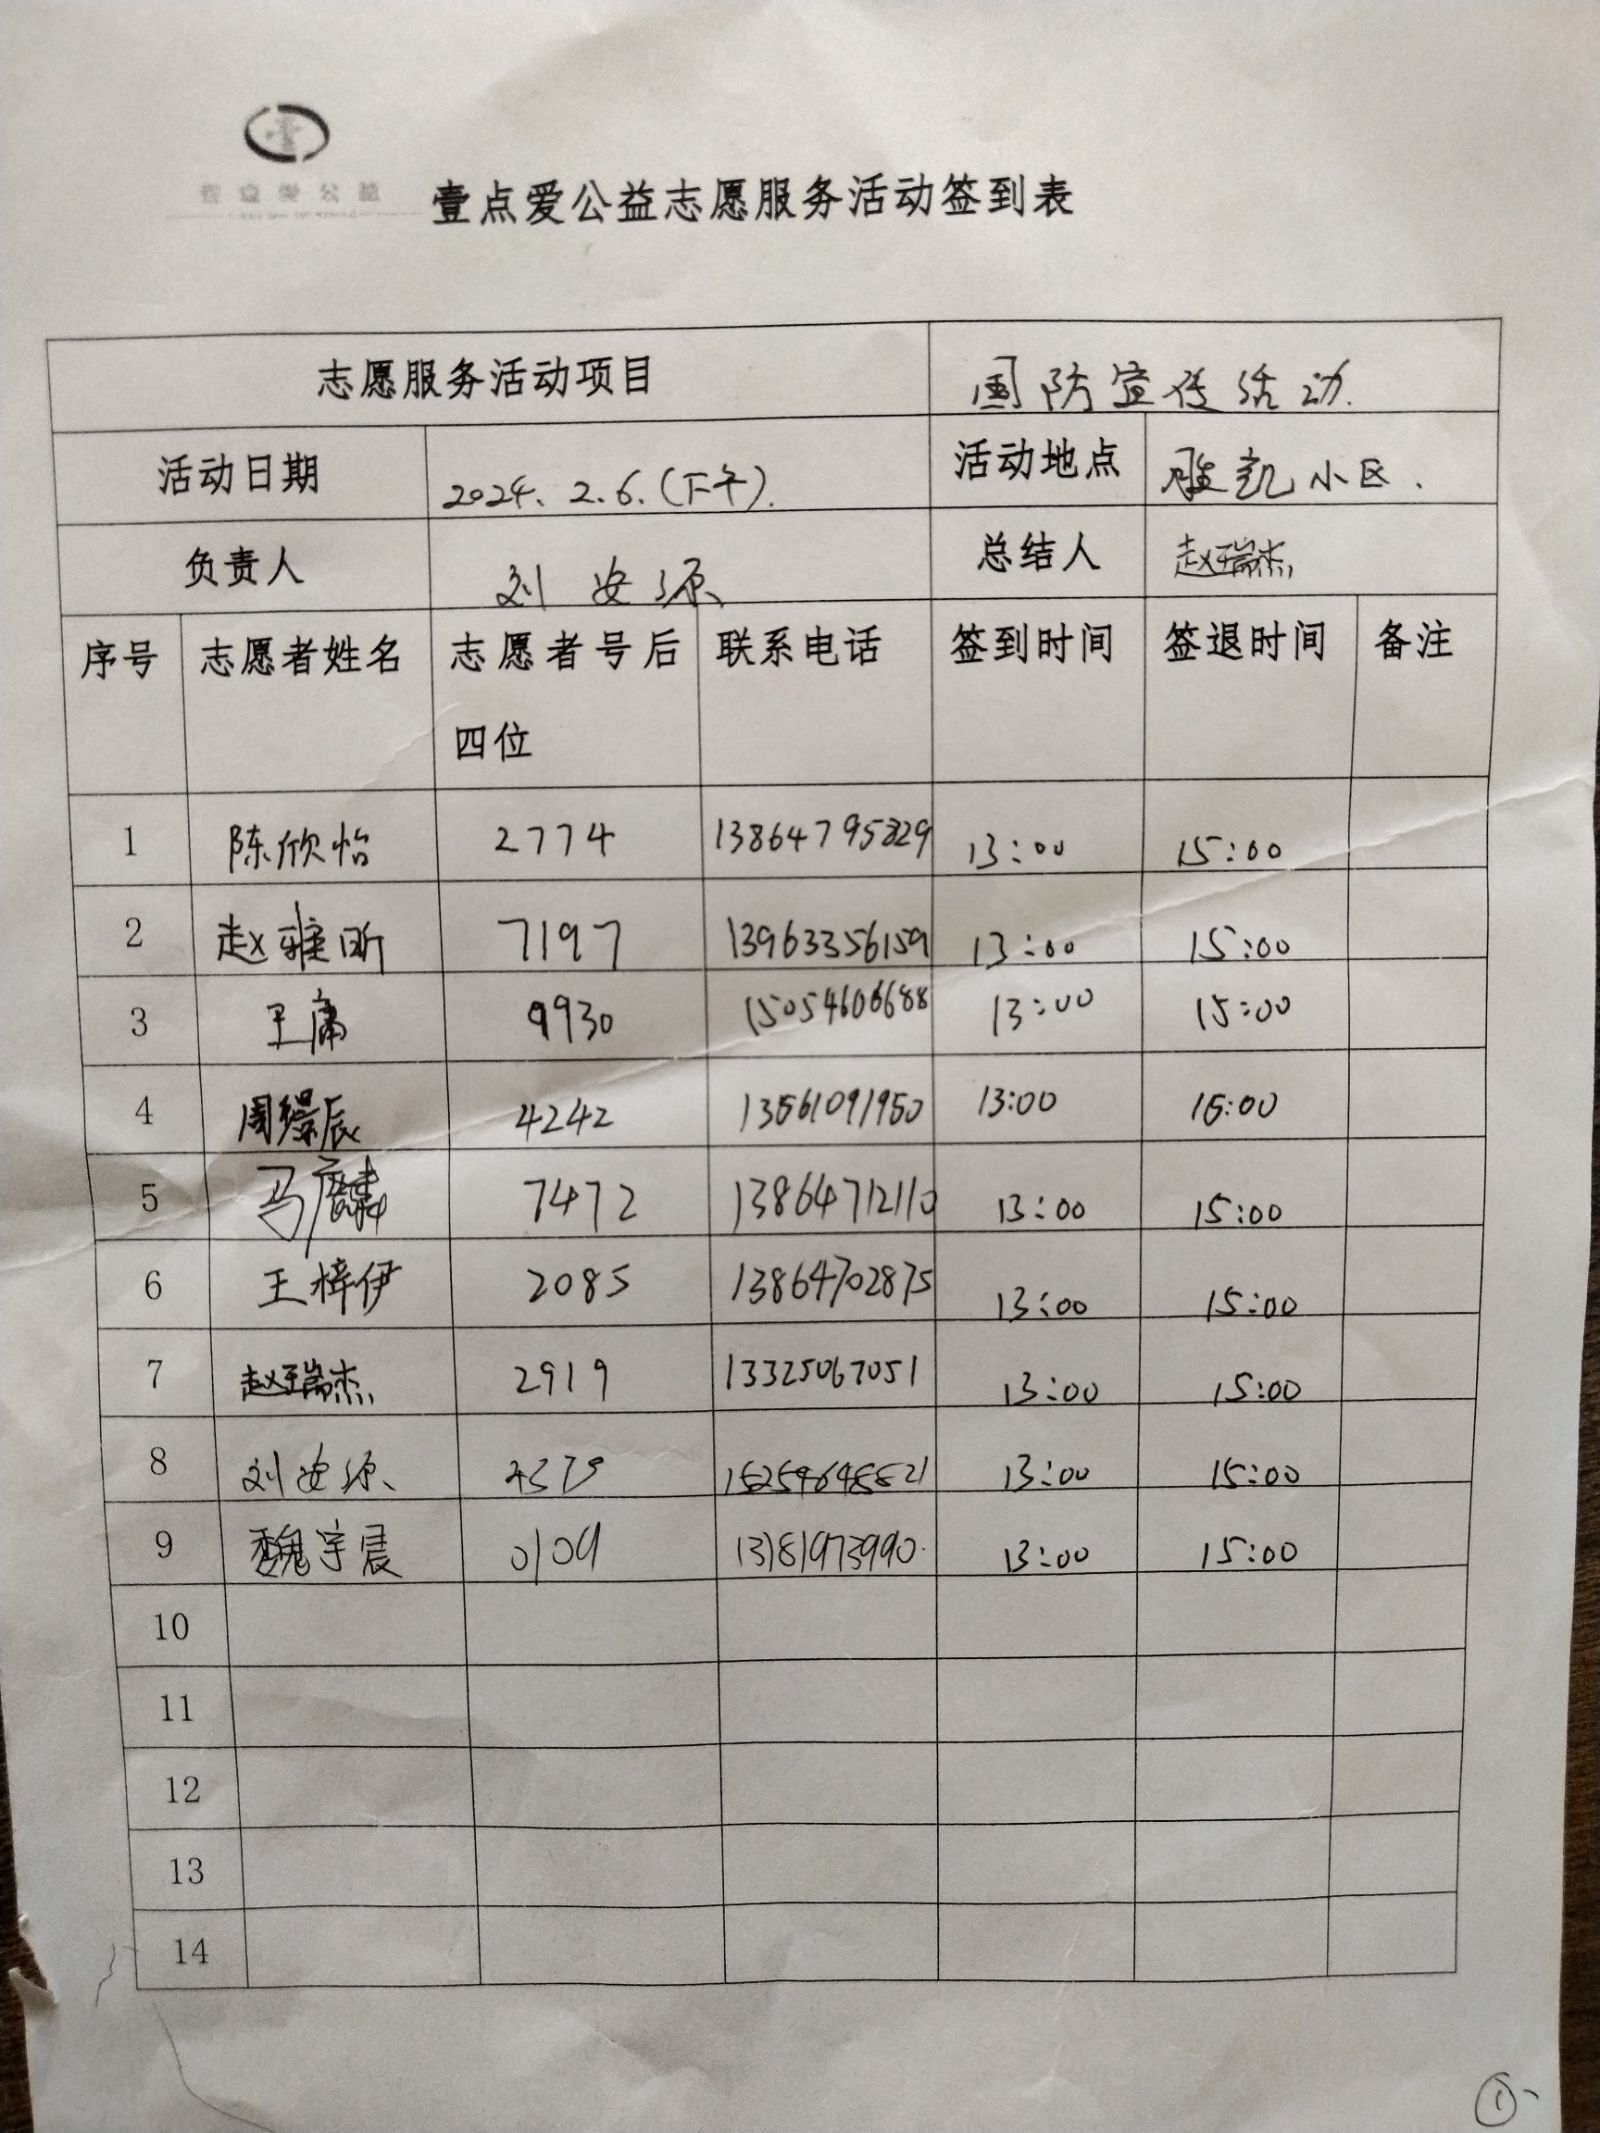 壹点爱公益
壹点爱公益志愿服务活动签到表
志愿服务活动项目 国防宣传活动.
活动日期 2024.2.6.(下午). 活动地点 雅凯小区.
负责人 刘安源 总结人 赵瑞杰
序号 志愿者姓名 志愿者号后四位 联系电话 签到时间 签退时间 备注
1 陈欣怡 2774 13:00 15:00
2 赵雅昕 7197 13963356159 13:00 15:00
3 王庸 9930 15054606688 13:00 15:00
4 周璟辰 4242 13561091950 13:00 15:00
5 马 7472 13864712110 13:00 15:00
6 王梓伊 2085 13864702875 13:00 15:00
7 赵瑞杰 2919 13325067051 13:00 15:00
8 刘安源 13:00 15:00
9 魏宇晨 0109 13181973990. 13:00 15:00
10
11
12
13
14
①